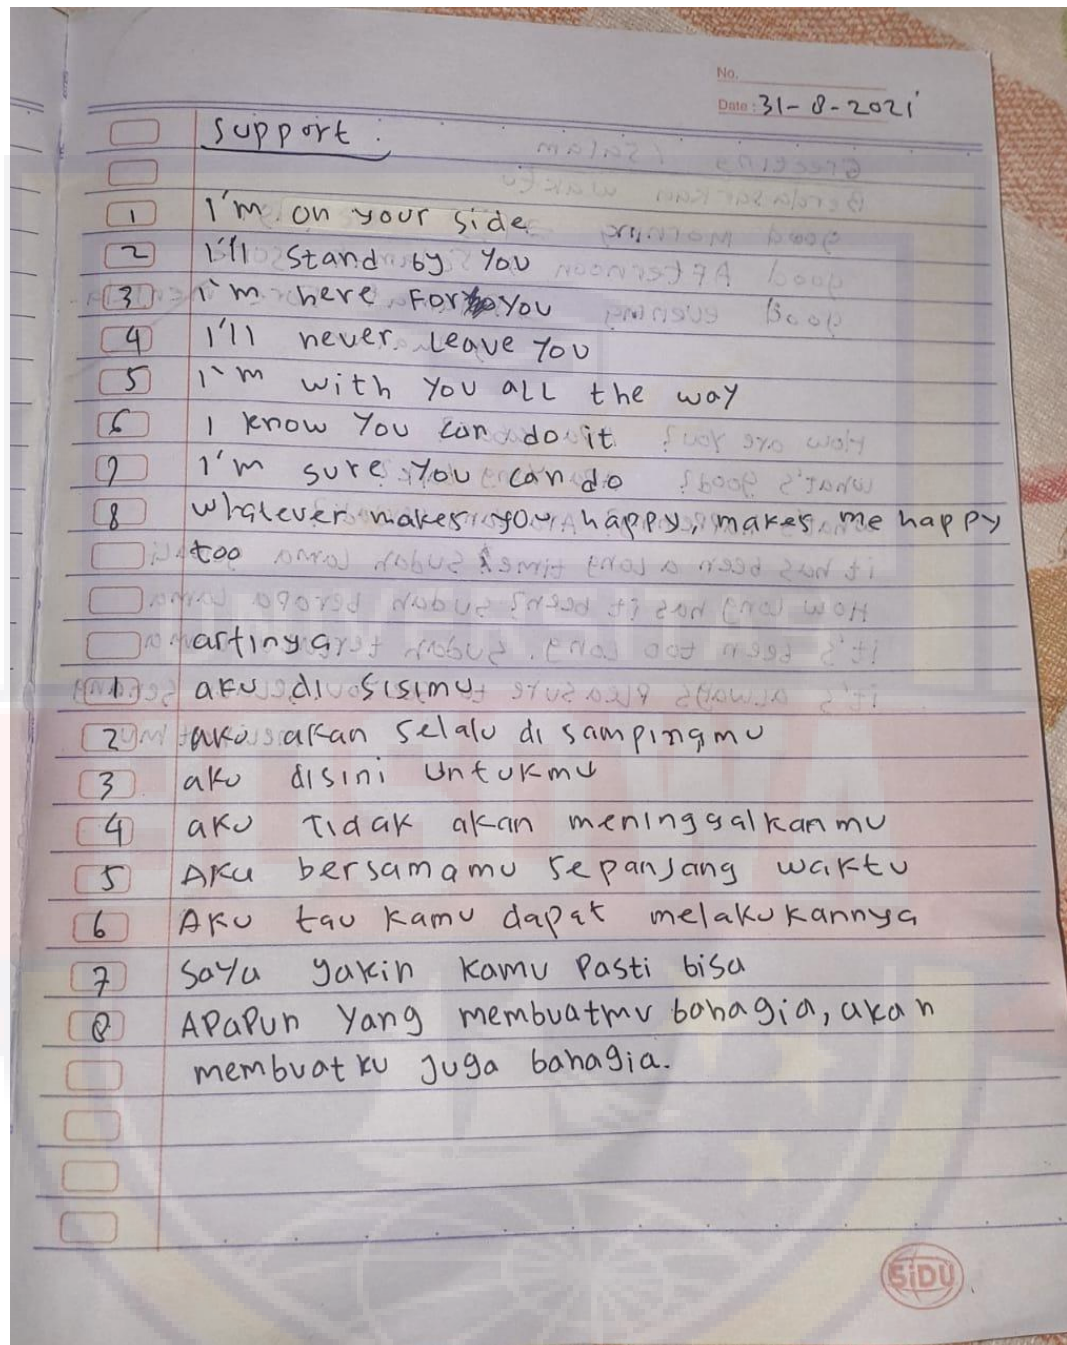 No.
Date : 31-8-2021
Support :
1 I'm on your side
2 I'll stand by you
3 i'm here For you
4 I'll never Leave You
5 I'm with You aLL the way
6 I know You can do it
7 I'm sure You can do
8 whatever makes you happy, makes me happy
too
artinya
1 aku di sisimu
2 aku akan selalu di sampingmu
3 aku disini untukmu
4 aku Tidak akan meninggalkanmu
5 Aku bersamamu sepanjang waktu
6 Aku tau kamu dapat melakukannya
7 Saya yakin kamu Pasti bisa
8 APaPun Yang membuatmu bahagia, akan
membuat ku Juga bahagia.
SiDU